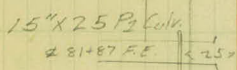 15" X 25 P1 Culv.
@ 81+87 F.E.
< 25 >